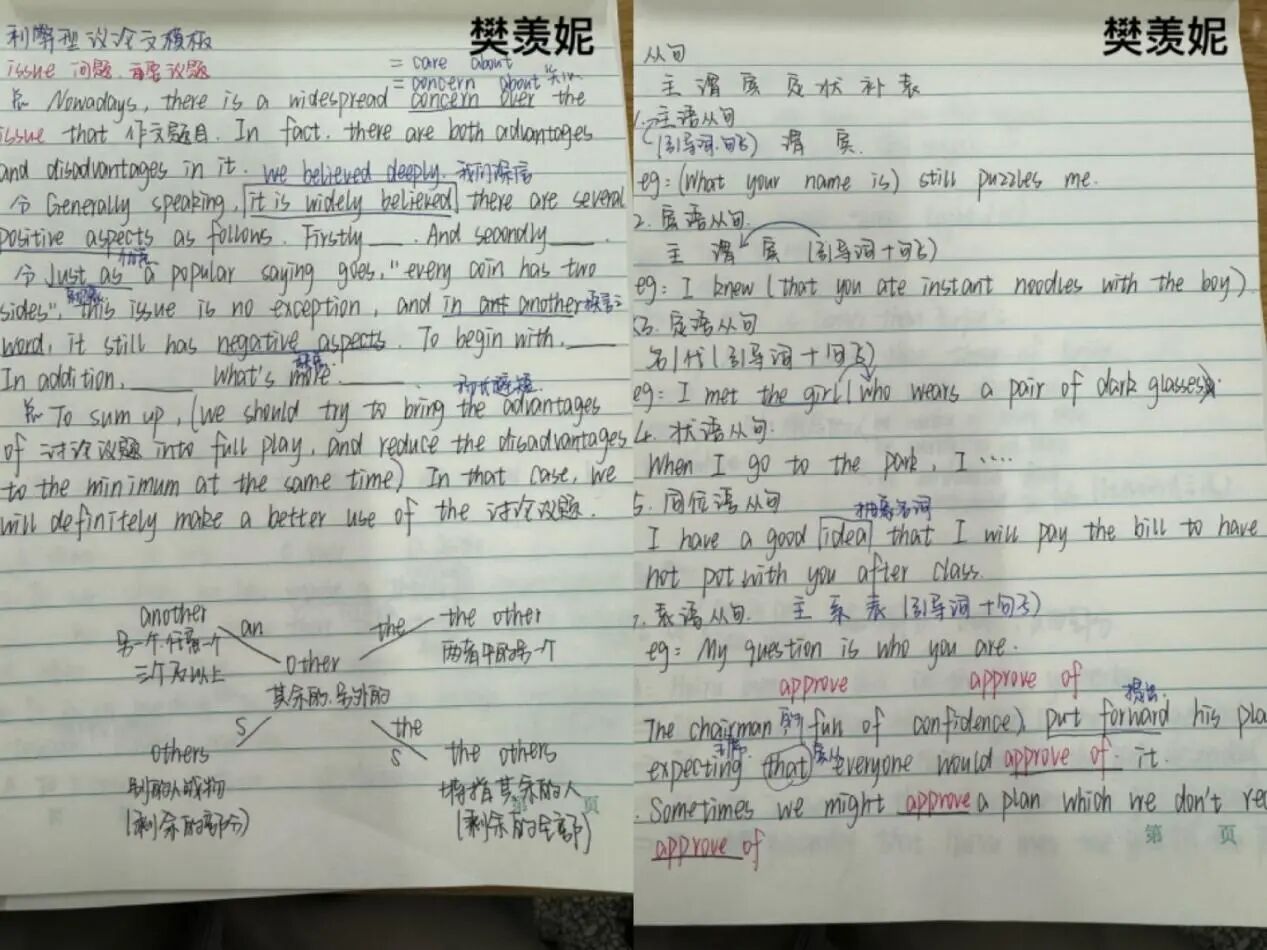 利弊型议论文模板
樊羡妮
issue 问题.重要议题
= care about
= concern about "关心
总 Nowadays, there is a widespread concern over the
issue that 作文题目. In fact. there are both advantages
and disadvantages in it. we believed deeply. 我们深信
分 Generally speaking, it is widely believed there are several
positive aspects as follows. Firstly ___. And secondly ___.
分 Just as a popular saying goes, "every coin has two
sides", this issue is no exception, and in ant another 换言之
word, it still has negative aspects. To begin with, ___
In addition, ___ What's more ___.
总 To sum up, (we should try to bring the advantages
of 讨论议题 into full play, and reduce the disadvantages
to the minimum at the same time) In that case, we
will definitely make a better use of the 讨论议题.
another an the the other
另一个.任意一个 other 两者中的另一个
三个及以上 其余的.另外的
s the s
others the others
别的人或物 特指其余的人
(剩余的部分) (剩余的全部)
第 页
樊羡妮
从句
主 谓 宾 定 状 补 表
1. 主语从句
(引导词.句子) 谓 宾.
eg: (What your name is) still puzzles me.
2. 宾语从句.
主 谓 宾 (引导词+句子)
eg: I knew (that you ate instant noodles with the boy).
3. 定语从句
名|代 (引导词+句子)
eg: I met the girl (who wears a pair of dark glasses).
4. 状语从句.
When I go to the park, I ····
5. 同位语从句
抽象名词
I have a good idea that I will pay the bill to have
hot pot with you after class.
7. 表语从句. 主 系 表 (引导词+句子)
eg: My question is who you are.
approve approve of
提出.
The chairman fun of confidence), put forward his pla
主席. 宾从
expecting that everyone would approve of it.
Sometimes we might approve a plan which we don't re
approve of
第 页